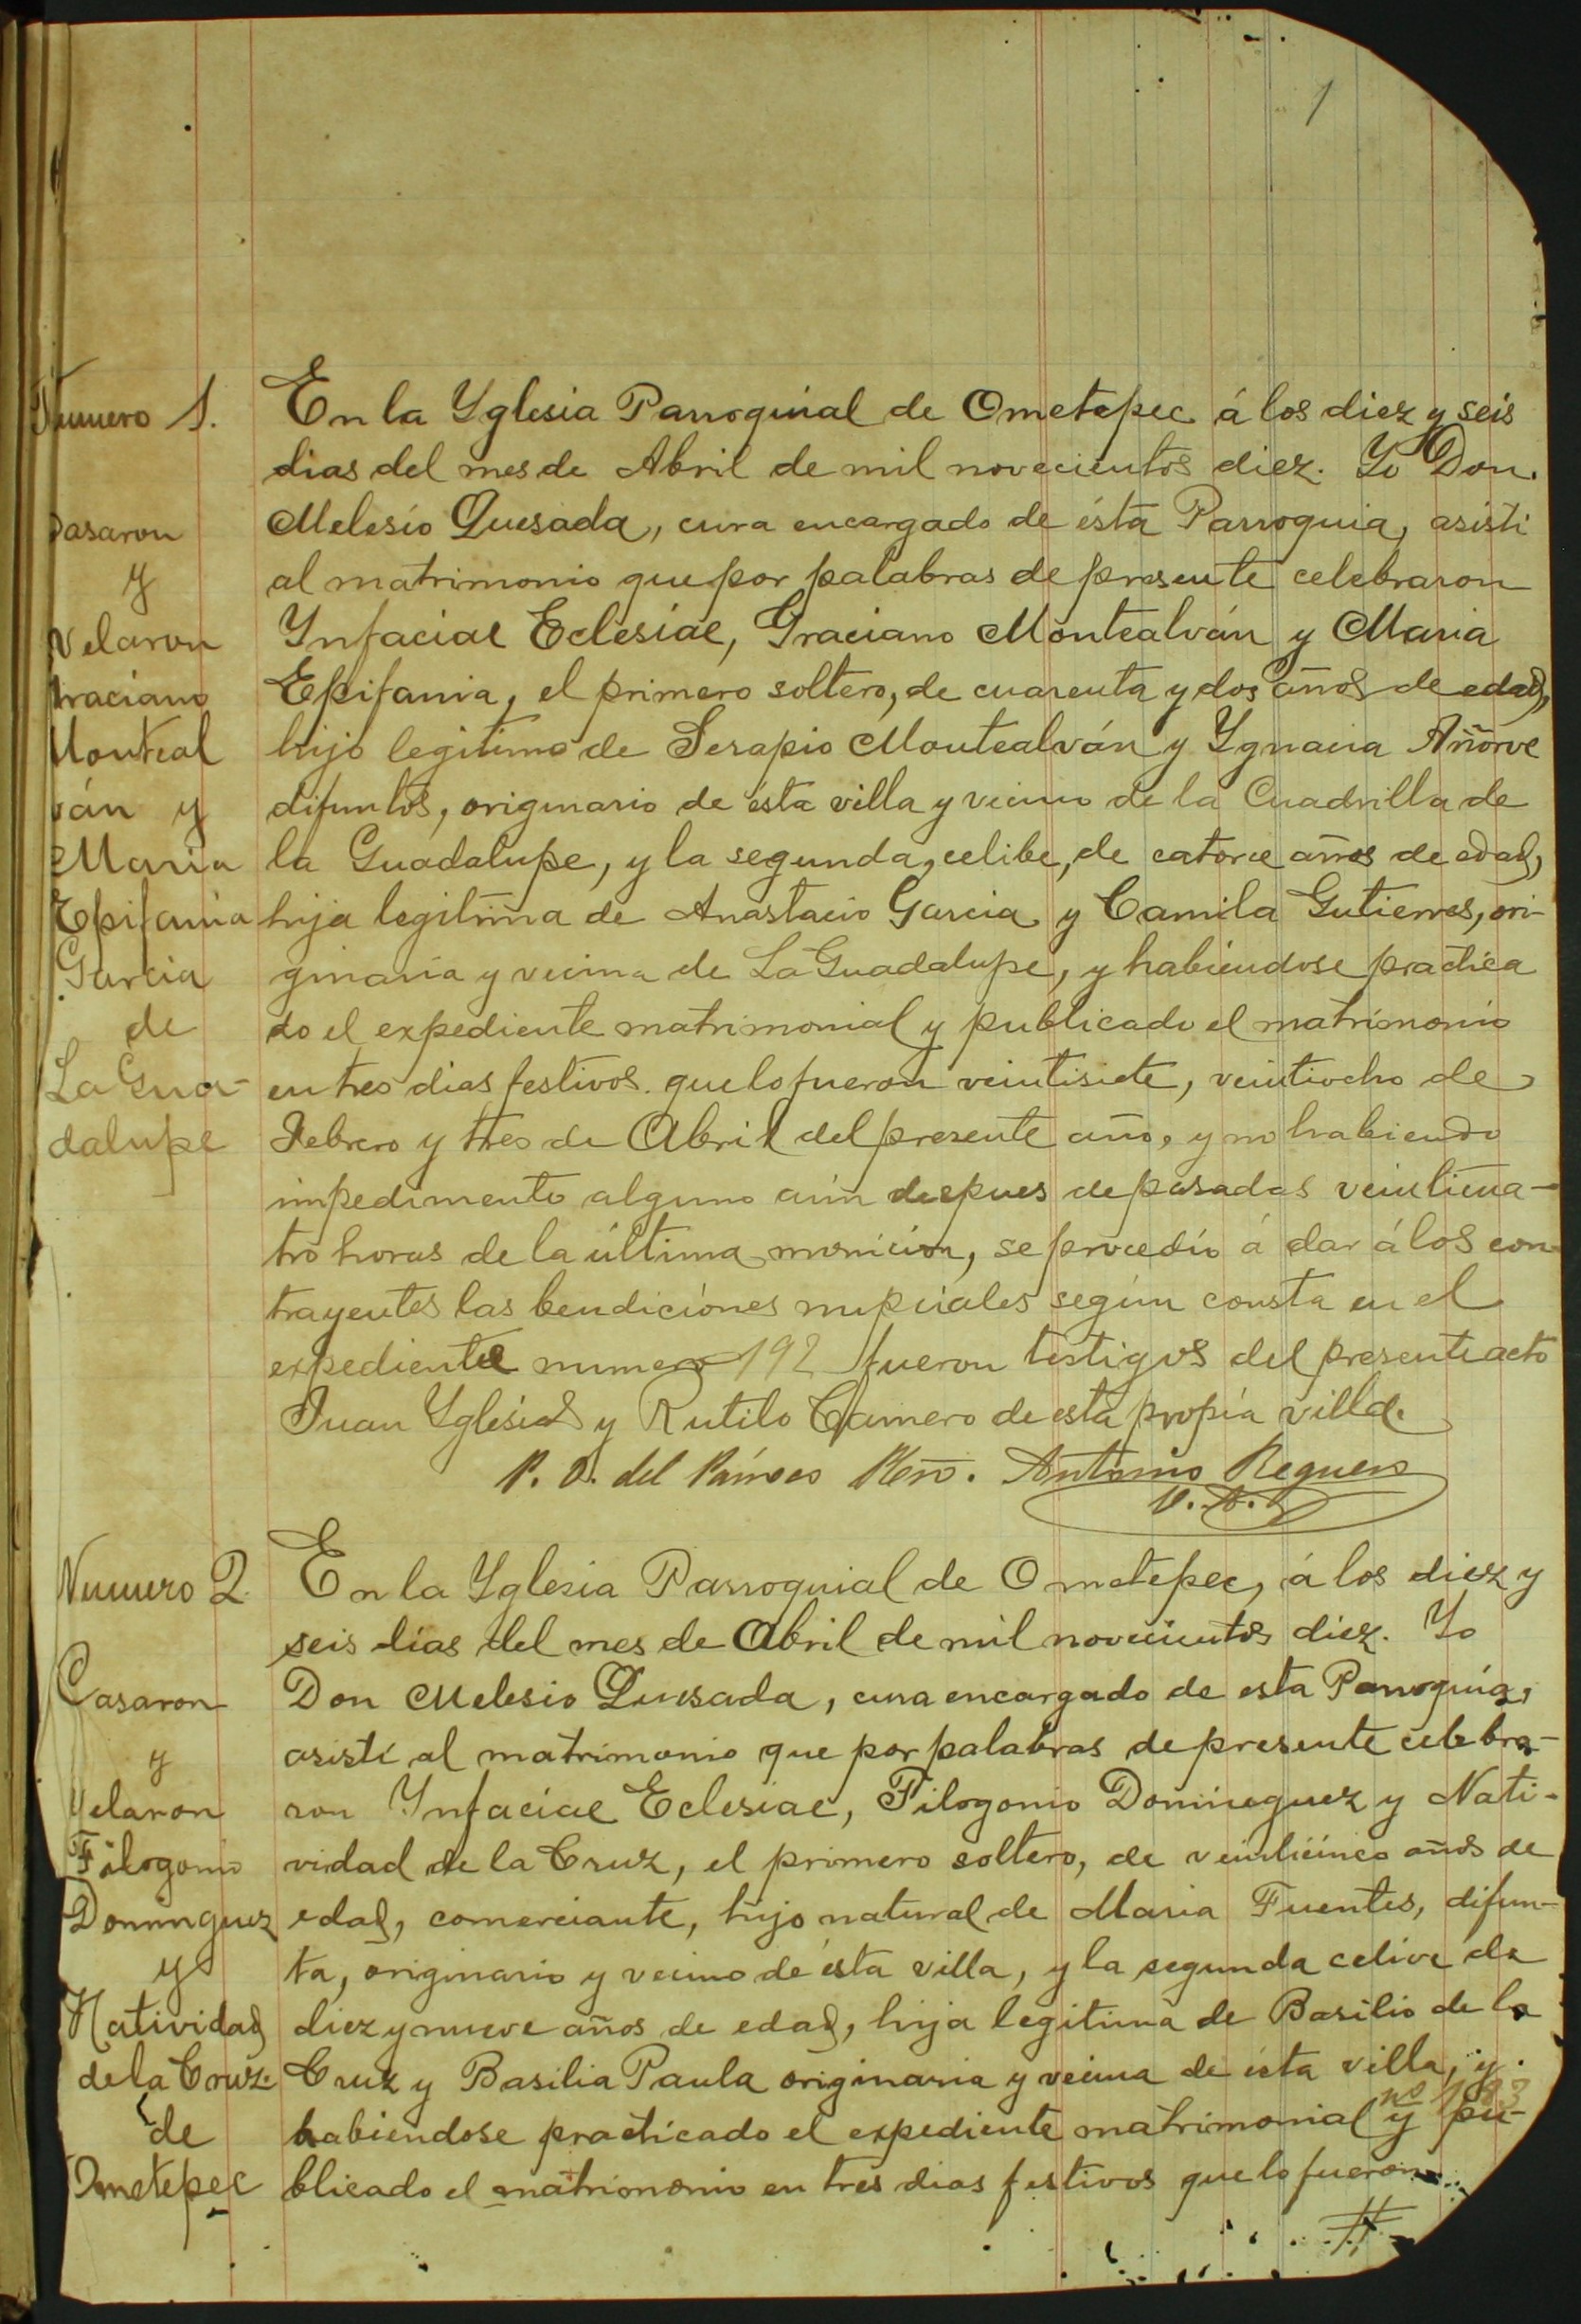 1
Numero 1.
Casaron
y
Velaron
Graciano
Monteal
ván y
Maria
Epifania
Garcia
de
La Gua-
dalupe
En la Yglesia Parroquial de Ometepec á los diez y seis
dias del mes de Abril de mil novecientos diez. Yo Don.
Melesio Quesada, cura encargado de ésta Parroquia, asisti
al matrimonio que por palabras de presente celebraron
Ynfaciae Eclesiae, Graciano Montealván y Maria
Epifania, el primero soltero, de cuarenta y dos años de edad,
hijo legitimo de Serapio Montealván y Ygnacia Añorve
difuntos, originario de ésta villa y vecino de la Cuadrilla de
la Guadalupe, y la segunda, celibe, de catorce años de edad,
hija legitima de Anastacio Garcia y Camila Gutierres, ori-
ginaria y vecina de La Guadalupe, y habiendose practica
do el expediente matrimonial y publicado el matrimonio
en tres dias festivos que lo fueron veintisiete, veintiocho de
Febrero y tres de Abril del presente año, y no habiendo
impedimento alguno aún despues de pasadas veinticua-
tro horas de la última monición, se procedio á dar á los con
trayentes las bendiciones nupciales según consta en el
expediente numero 192 fueron testigos del presente acto
Juan Yglesias y Rutilo Camero de esta propia villa.
P. O. del Párroco Pbro. Antonio Reguera
V. A.
Numero 2.
Casaron
y
Velaron
Filogonio
Dominguez
y
Natividad
de la Cruz.
de
Ometepec
En la Yglesia Parroquial de Ometepec, á los diez y
seis dias del mes de Abril de mil novecientos diez. Yo
Don Melesio Quesada, cura encargado de esta Parroquia,
asistí al matrimonio que por palabras de presente celebra-
ron Ynfaciae Eclesiae, Filogonio Dominguez y Nati-
vidad de la Cruz, el primero soltero, de veinticinco años de
edad, comerciante, hijo natural de Maria Fuentes, difun-
ta, originario y vecino de ésta villa, y la segunda celive de
diez y nueve años de edad, hija legitima de Basilio de la
Cruz y Basilia Paula originaria y vecina de ésta villa, y
habiendose practicado el expediente matrimonial y pu-
blicado el matrimonio en tres dias festivos que lo fueron